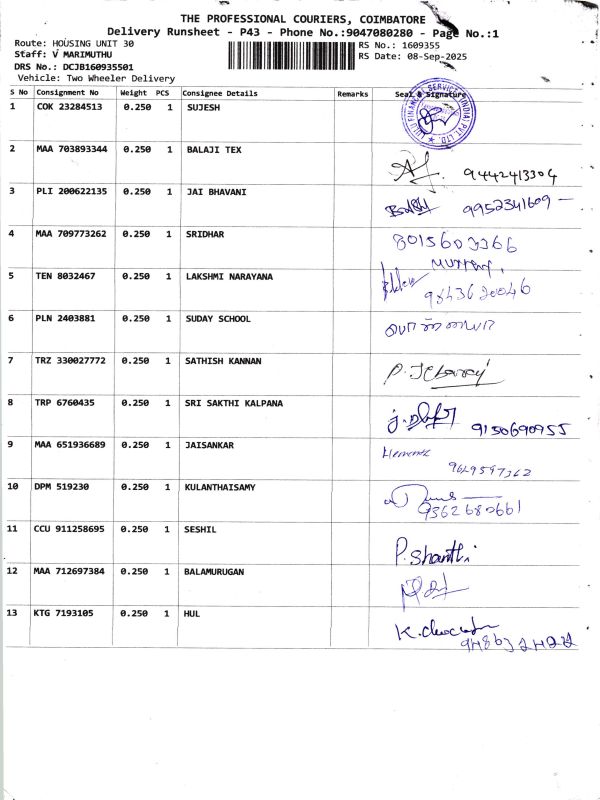 THE PROFESSIONAL COURIERS, COIMBATORE
Delivery Runsheet - P43 - Phone No.:9047080280 - Page No.:1
Route: HOUSING UNIT 30
Staff: V MARIMUTHU
DRS No.: DCJB160935501
Vehicle: Two Wheeler Delivery
RS No.: 1609355
RS Date: 08-Sep-2025
S No Consignment No Weight PCS Consignee Details Remarks Seal & Signature
1 COK 23284513 0.250 1 SUJESH
FINANCIAL SERVICES (INDIA) PVT. LTD.
2 MAA 703893344 0.250 1 BALAJI TEX
9442413304
3 PLI 200622135 0.250 1 JAI BHAVANI
9952341609
4 MAA 709773262 0.250 1 SRIDHAR
8015603366
5 TEN 8032467 0.250 1 LAKSHMI NARAYANA
9843620046
6 PLN 2403881 0.250 1 SUDAY SCHOOL
7 TRZ 330027772 0.250 1 SATHISH KANNAN
8 TRP 6760435 0.250 1 SRI SAKTHI KALPANA
9150690955
9 MAA 651936689 0.250 1 JAISANKAR
9629597362
10 DPM 519230 0.250 1 KULANTHAISAMY
9362682661
11 CCU 911258695 0.250 1 SESHIL
P. Shanthi
12 MAA 712697384 0.250 1 BALAMURUGAN
13 KTG 7193105 0.250 1 HUL